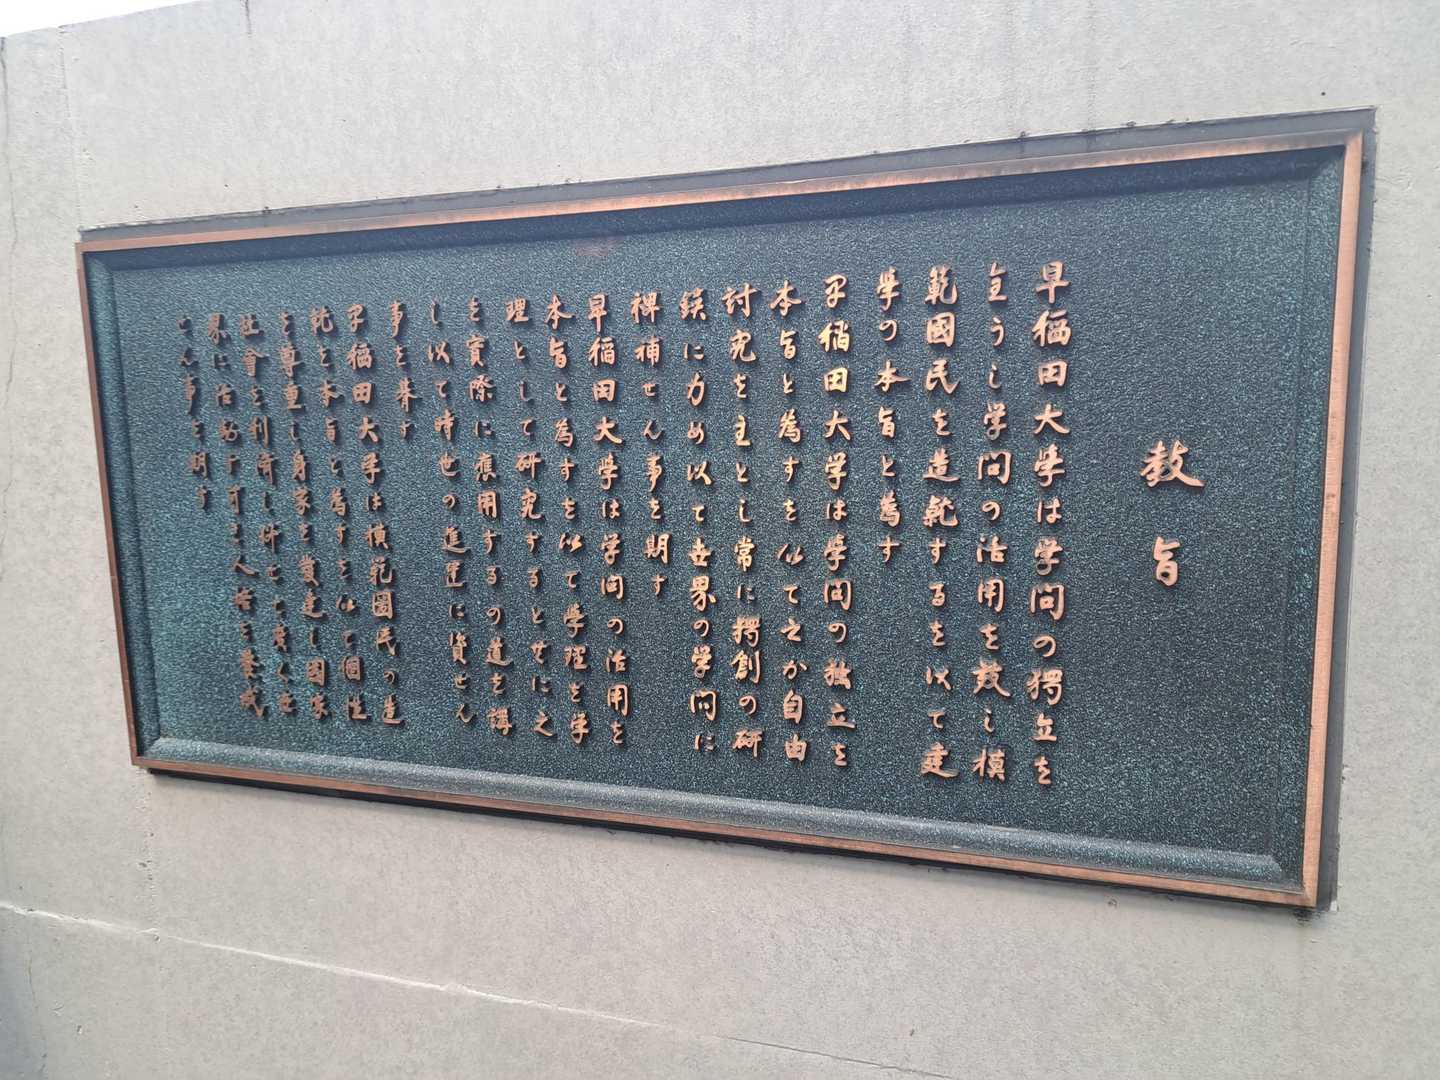 教旨
早稲田大學は学問の獨立を
全うし学問の活用を效し模
範國民を造就するを以て建
學の本旨と為す
早稲田大学は學問の独立を
本旨と為すを以て之か自由
討究を主とし常に獨創の研
鑚に力め以て世界の学問に
裨補せん事を期す
早稲田大學は学問の活用を
本旨と為すを以て学理を学
理として研究するとせに之
を實際に應用するの道を講
し以て時世の進運に資せん
事を期す
早稲田大学は模範國民の造
就を本旨と為すを以て個性
を尊重し身家を發達し國家
社會を利濟し併せて廣く世
界に活動す可き人格を養成
せん事を期す